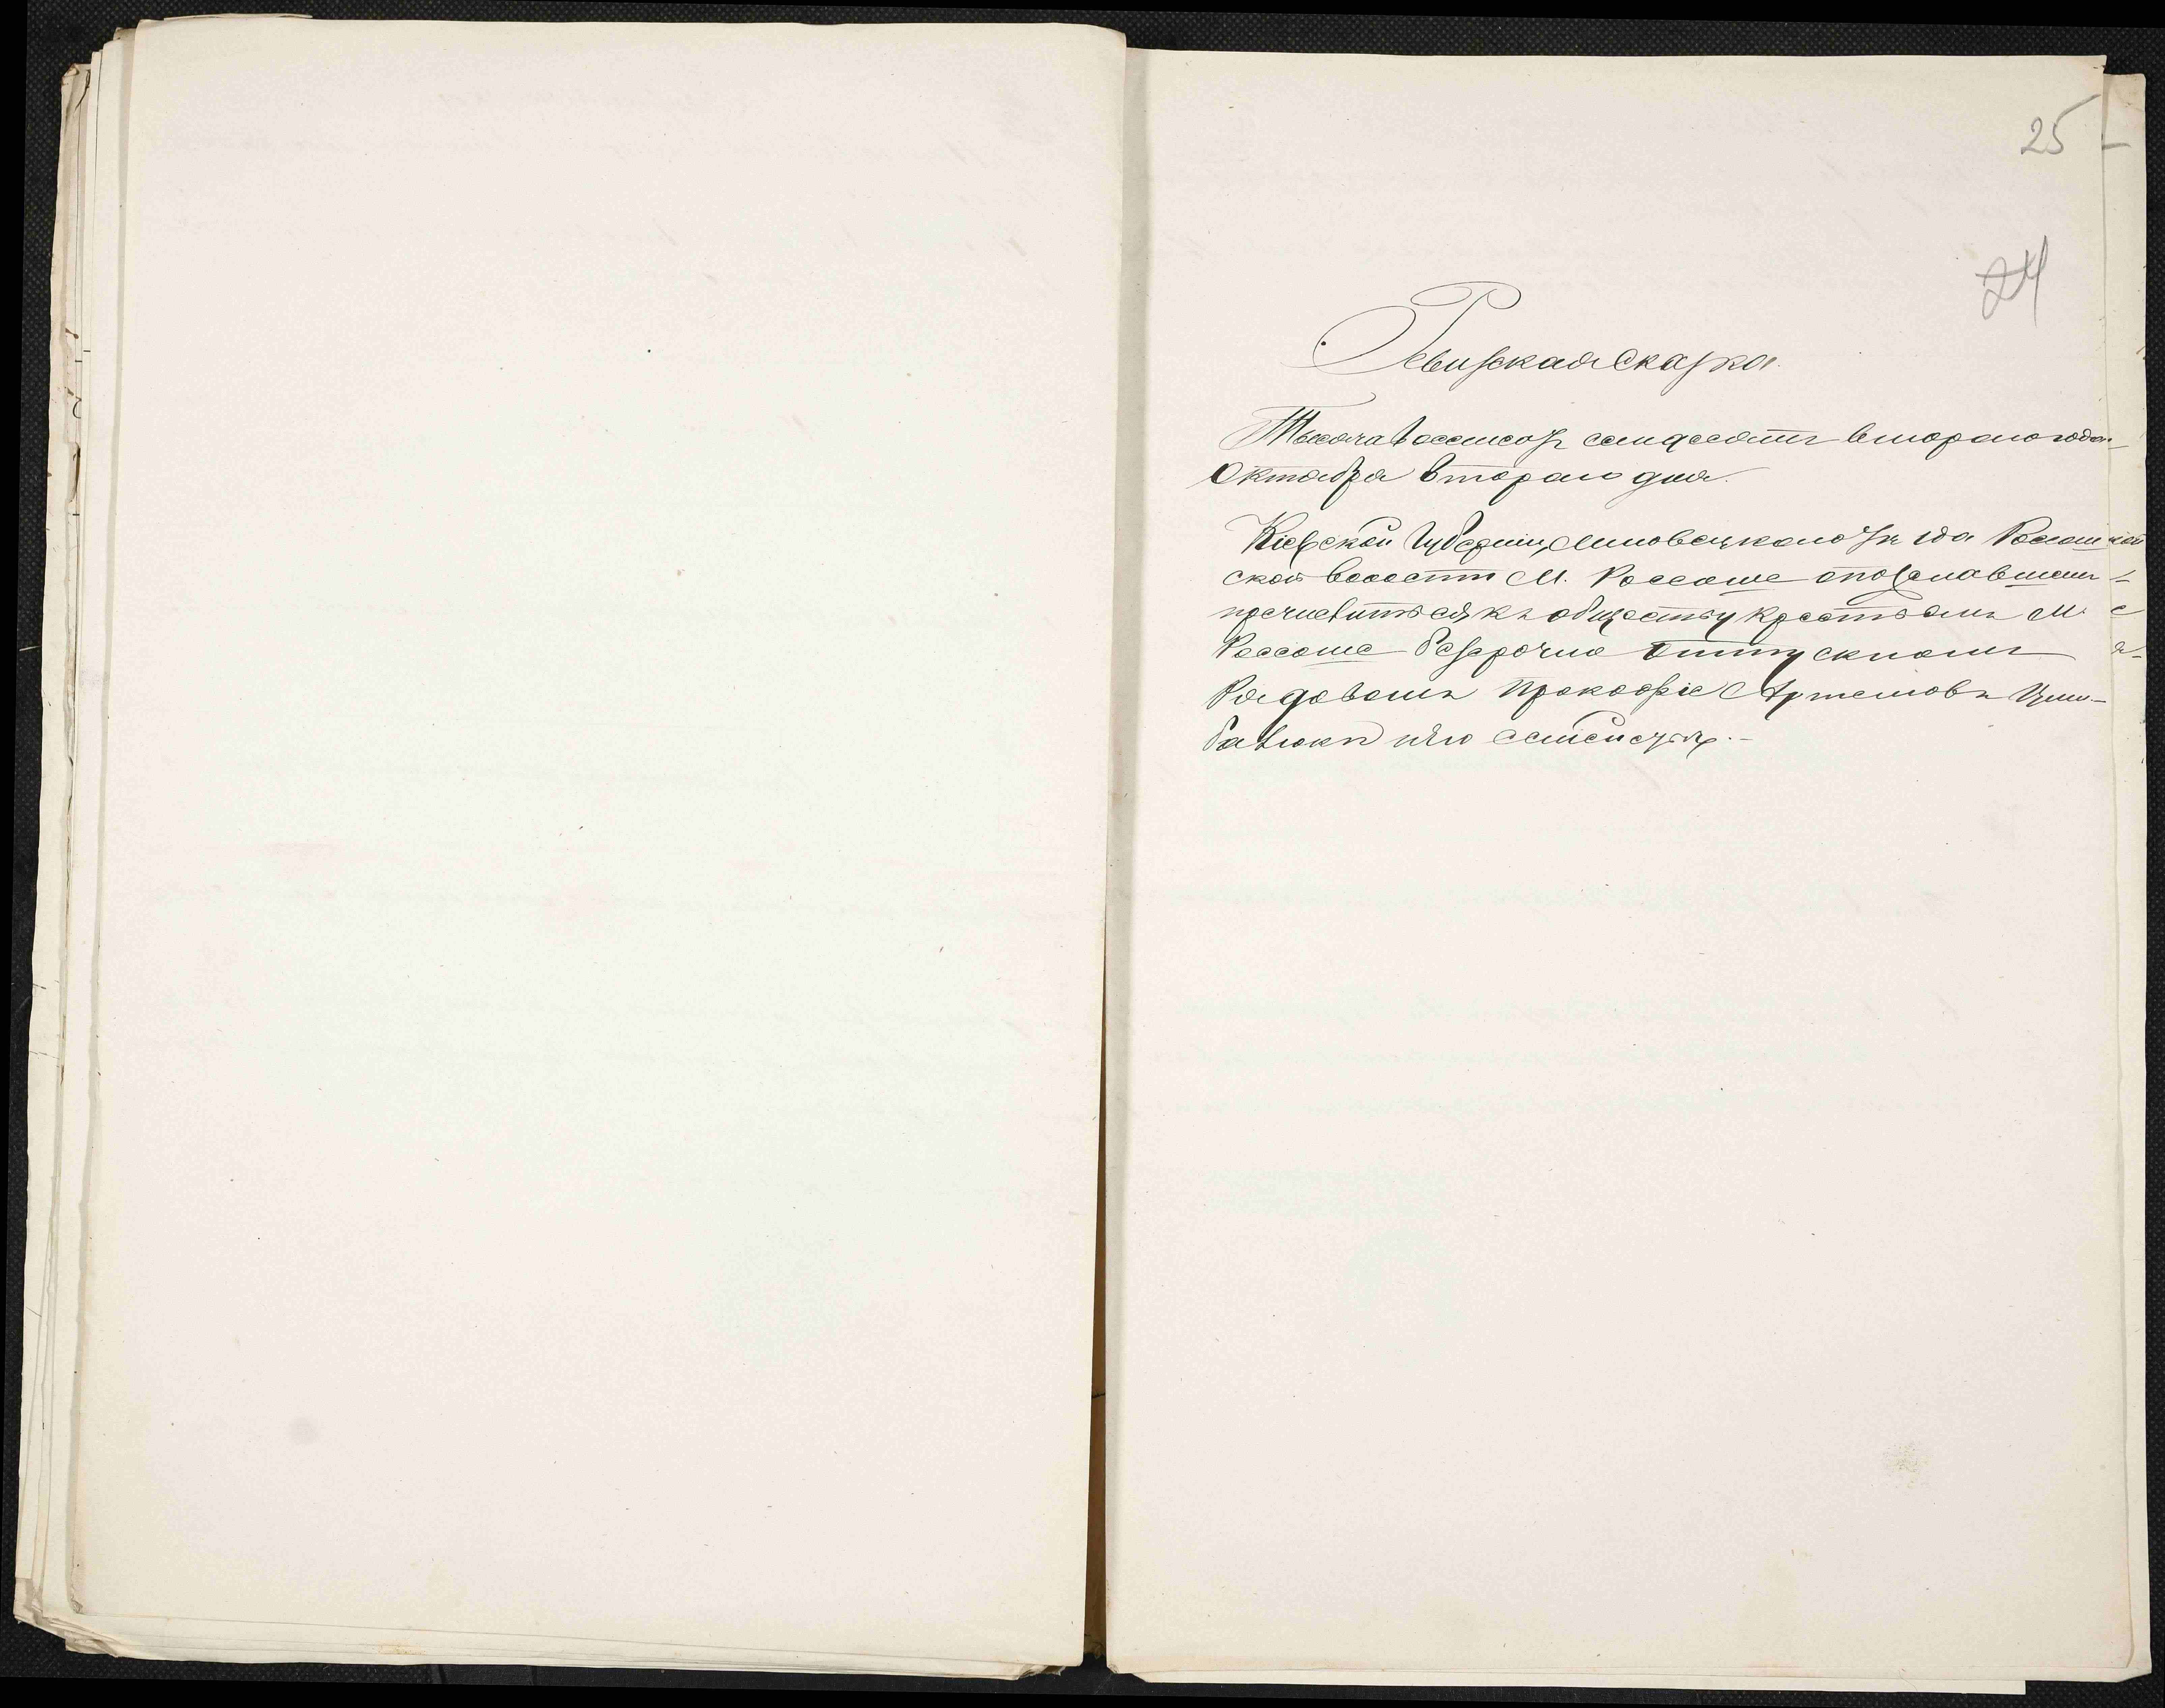 25
24
Ревизская Сказка
Тысяча восемсотъ семдесятъ втораго года
Октября втораго дня.
Кіевской Губерніи, Липовецкаго уѣзда Россош
ской волости М. Россоше
къ обществу крестьянъ М.
Россоше безсрочно отпускномъ
Рядовомъ Прокофіе Артемовъ Цим-
балюкъ и его семействѣ.-